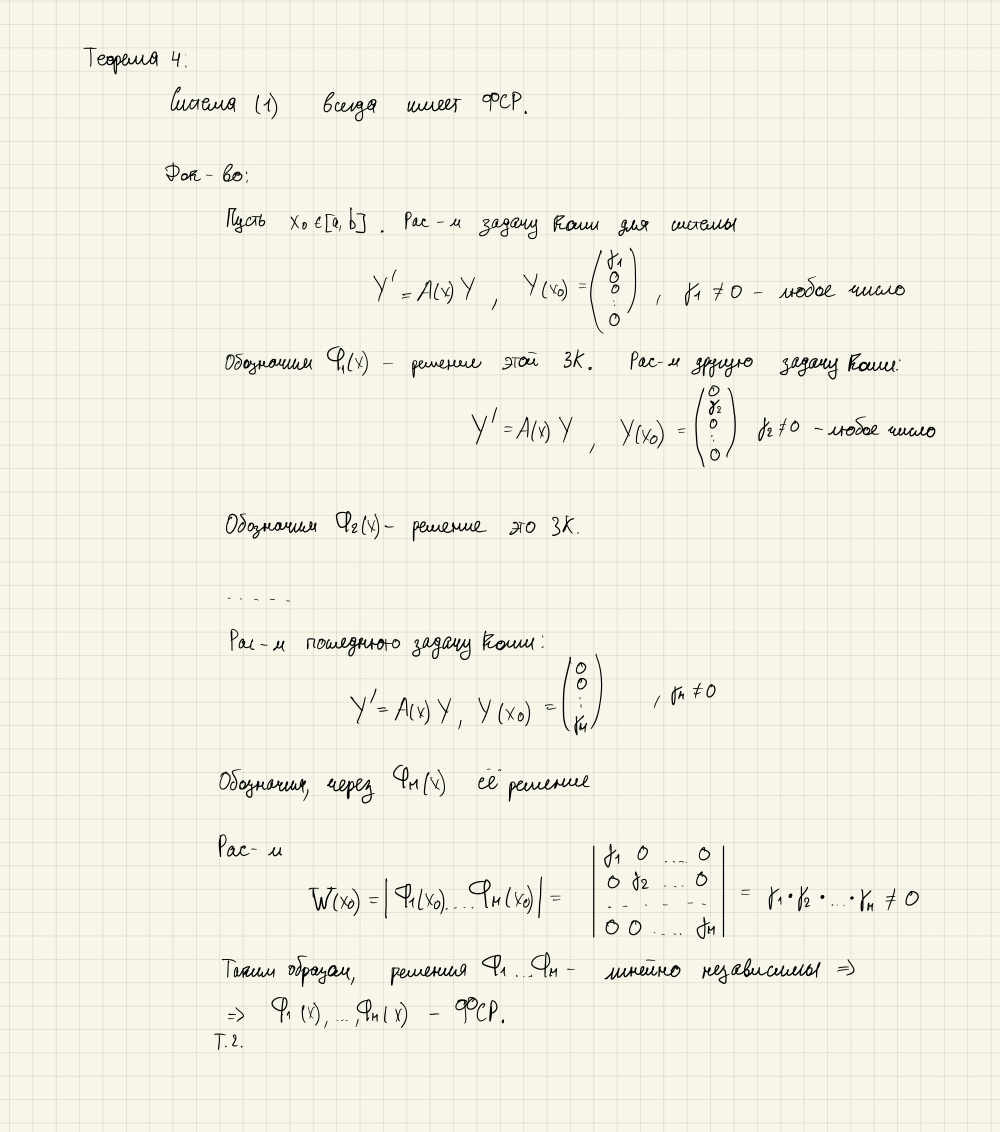 Теорема 4:
Система (1) всегда имеет ФСР.
Док-во:
Пусть x₀ ∈ [a, b]. Рас-м задачу Коши для системы
Y' = A(x) Y, Y(x₀) = (γ₁ 0 0 ⋮ 0), γ₁ ≠ 0 – любое число
Обозначим φ₁(x) – решение этой ЗК. Рас-м другую задачу Коши:
Y' = A(x) Y, Y(x₀) = (0 γ₂ 0 ⋮ 0) γ₂ ≠ 0 – любое число
Обозначим φ₂(x) – решение это ЗК.
.....
Рас-м последнюю задачу Коши:
Y' = A(x) Y, Y(x₀) = (0 0 ⋮ γₙ), γₙ ≠ 0
Обозначим, через φₙ(x) её решение
Рас-м
W(x₀) = |φ₁(x₀)....φₙ(x₀)| = |γ₁ 0 .... 0; 0 γ₂ .... 0; - - - - - -; 0 0 .... γₙ| = γ₁·γ₂·...·γₙ ≠ 0
Таким образом, решения φ₁...φₙ – линейно независимы =>
=> φ₁(x), ..., φₙ(x) – ФСР.
Т.2.